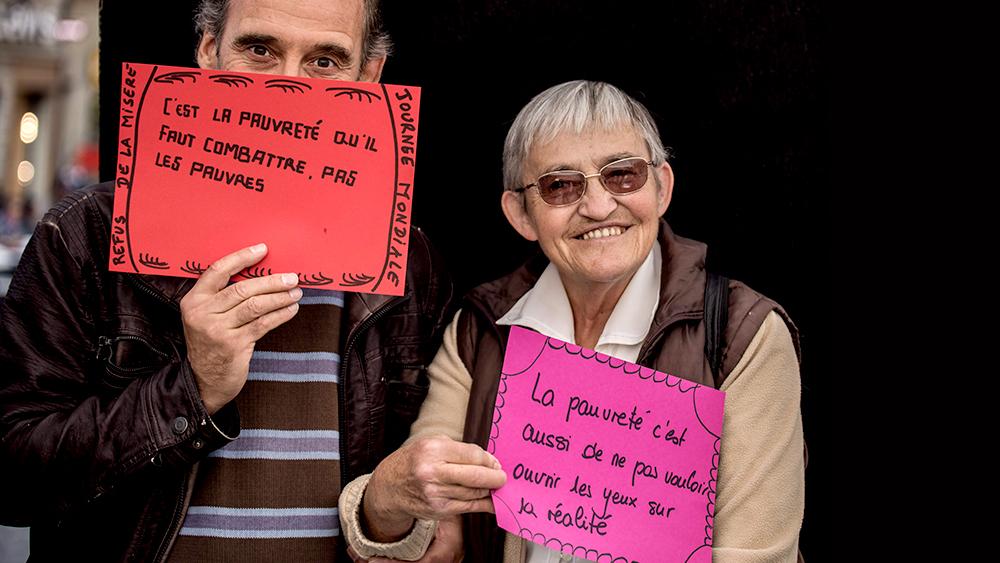 REFUS DE LA MISERE
C'EST LA PAUVRETÉ QU'IL
FAUT COMBATTRE, PAS
LES PAUVRES
JOURNÉE MONDIALE
La pauvreté c'est
aussi de ne pas vouloir
ouvrir les yeux sur
sa réalité